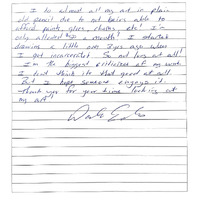 I do almost all my art in plain
old pencil due to not being able to
afford paints, pens, charcoals, etc! I'm
only allowed 2 a month! I started
drawing a little over 3 yrs ago when
I got incarcerated. So not long at all!
I'm the biggest criticizer of my work
I don't think its that good at all.
But I hope someone enjoys it.
Thank you for your time looking at
my art!